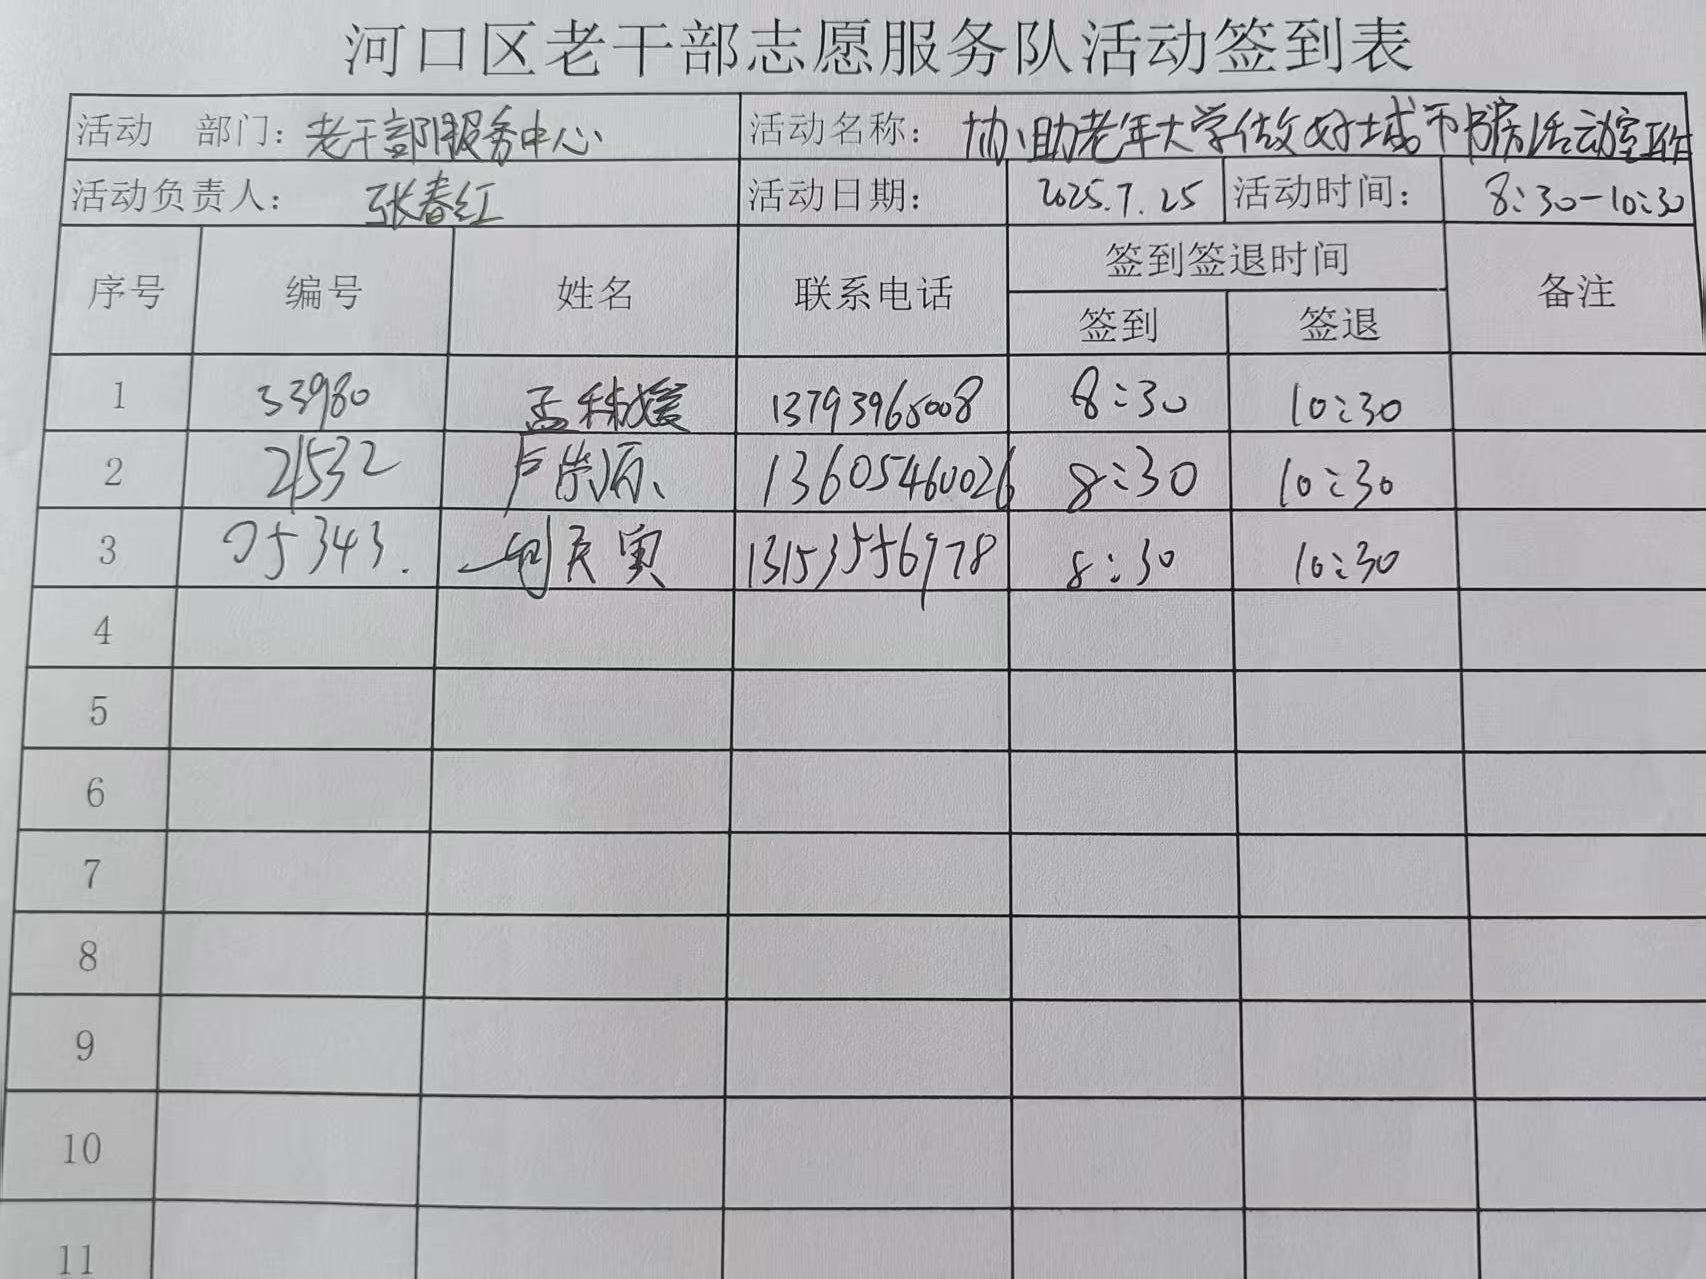 河口区老干部志愿服务队活动签到表
活动 部门：老干部服务中心 活动名称：协助老年大学做好城市书房活动室工作
活动负责人：张春红 活动日期：2025.7.25 活动时间：8:30-10:30
序号 编号 姓名 联系电话 签到签退时间 备注
签到 签退
1 33980 孟秋媛 13793965008 8:30 10:30
2 21532 卢崇源 13605460026 8:30 10:30
3 05343. 13153556978 8:30 10:30
4
5
6
7
8
9
10
11